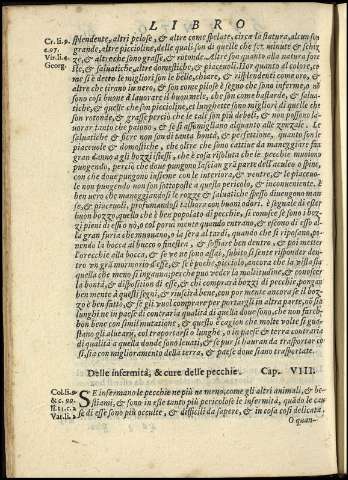 LIBRO
Cr. li. 9.
c. 97.
Vir. li. 4.
Georg.
splendente, altri pelose, & altre come spelate, circa la statura, alcun son
grande, altre piccioline, delle quali son di quelle che son minute & schiz
ze, & altre che sono grasse, & rotonde. Altre son quanto alla natura fore
ste, & saluatiche, altre domestiche, & piaceuoli. Hor quanto al colore, co
me si è detto le migliori son le belle, chiare, & risplendenti come oro, &
altre che tirano in nero, & son come pilose è segno che sono inferme, o nò
sono così buone à lauorare il buonmele, che son come bastarde, & salua-
tiche, & quelle che son piccioline, et lunghette sono migliori di quelle che
son rotonde, & grasse perciò che le tali son più deboli, & non possono la-
uorar tanto che paiono, & se si assomigliano alquanto alle zenzale. Le
saluatiche & fiere non son di tanta bontà, & perfettione, quanto son le
piaceuole & domestiche, che oltre che sono cattiue da maneggiare fan
gran danno à gli bozzi istessi, che è cosa risoluta che le pecchie muoiono
pungendo, perciò che doue pungono lasciano gra parte dell'aculeo ò spine,
con che doue pungono insieme con le interiora, & ventre, & le piaceuo-
le non pungendo non son sottoposte a questo pericolo, & inconueniente, è
ben uero che maneggiandosi le rozze & saluatiche spesso diuengono mansue
te, & piaceuoli, profumandosi tall'hora con buoni odori. è segnale di esser
buon bozzo, quello che è ben popolato di pecchie, si conosce se sono i boz-
zi pieni di esse ò nò, ò col porui mente quando entrano, & escono di esso al-
la gran furia che menano, ò la sera al tardi, quando che si riposano, po-
nendo la bocca al bucco ò finestra, & soffiare ben dentro, & poi metter
l'orecchie alla bocca, & se ve ne sono assai, subito si sente renderder dentro
vn grã mormorio d'esse, & se è poche, piccolo, ancora che la vista sia
quella che meno si inganni, perche puo veder la moltitudine, & conoscer
la bontà, & dispositione di esse, & chi comprarà bozzi di pecchie, pongan
ben mente à questi segni, & riuscirà bene, con por mente ancora se il boz-
zo è ben fatto, & se gli vuol comprare per portargli in altra parte, nò sia
lunghi ne in paese di contraria qualità di quella doue sono, che non farebbon
bene con simil mutationi, & quello è cagion che molte volte si gua-
stano gli alueari, col trasportarsi lunghi, ò in paese & terra contraria
di qualità à quella donde sono leuati, & se pur si hauran da trasportar co
sì, sia con miglioramento della terra, & paese doue siano trasportate.
Delle infermità, & cure delle pecchie. Cap. VIII.
Col. li. 9.
& c. 99.
Pl. 11. c. 2
Var. li. 3
SE infermano le pecchie ne più ne meno, come gli altri animali, & be-
stiami, & sono in esse tanto più pericolose le infermità, quãdo le cau-
se di esse sono più occulte, & difficili da sapere, & in cosa così delicata,
O quan-